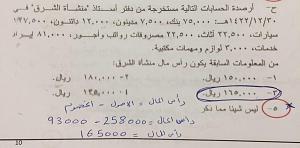 ج- أرصدة الحسابات التالية مستخرجة من دفتر أستاذ "منشأة الشرق" في
١٤٢٢/١٢/٣٠هـ: ٧٥,٠٠٠ بنك، ٧,٥٠٠ مدينون، ١٢,٠٠٠ دائنون، ١٤٧,٥٠٠
سيارات، ٢٢,٥٠٠ أثاث، ٢٢,٥٠٠ مصروفات رواتب وأجور، ٨١,٠٠٠ إيراد
خدمات، ٣,٠٠٠ لوازم ومهمات مكتبية.
من المعلومات السابقة يكون رأس مال منشأة الشرق:
١- ١٥٠,٠٠٠ ريال. ٢- ١٨٠,٠٠٠ ريال.
٣- ١٦٥,٠٠٠ ريال. ٤- ريال.
٥- ليس شيئا مما ذكر
رأس المال = الأصول - الخصوم
رأس المال = 258000 - 93000
رأس المال = 165000
10